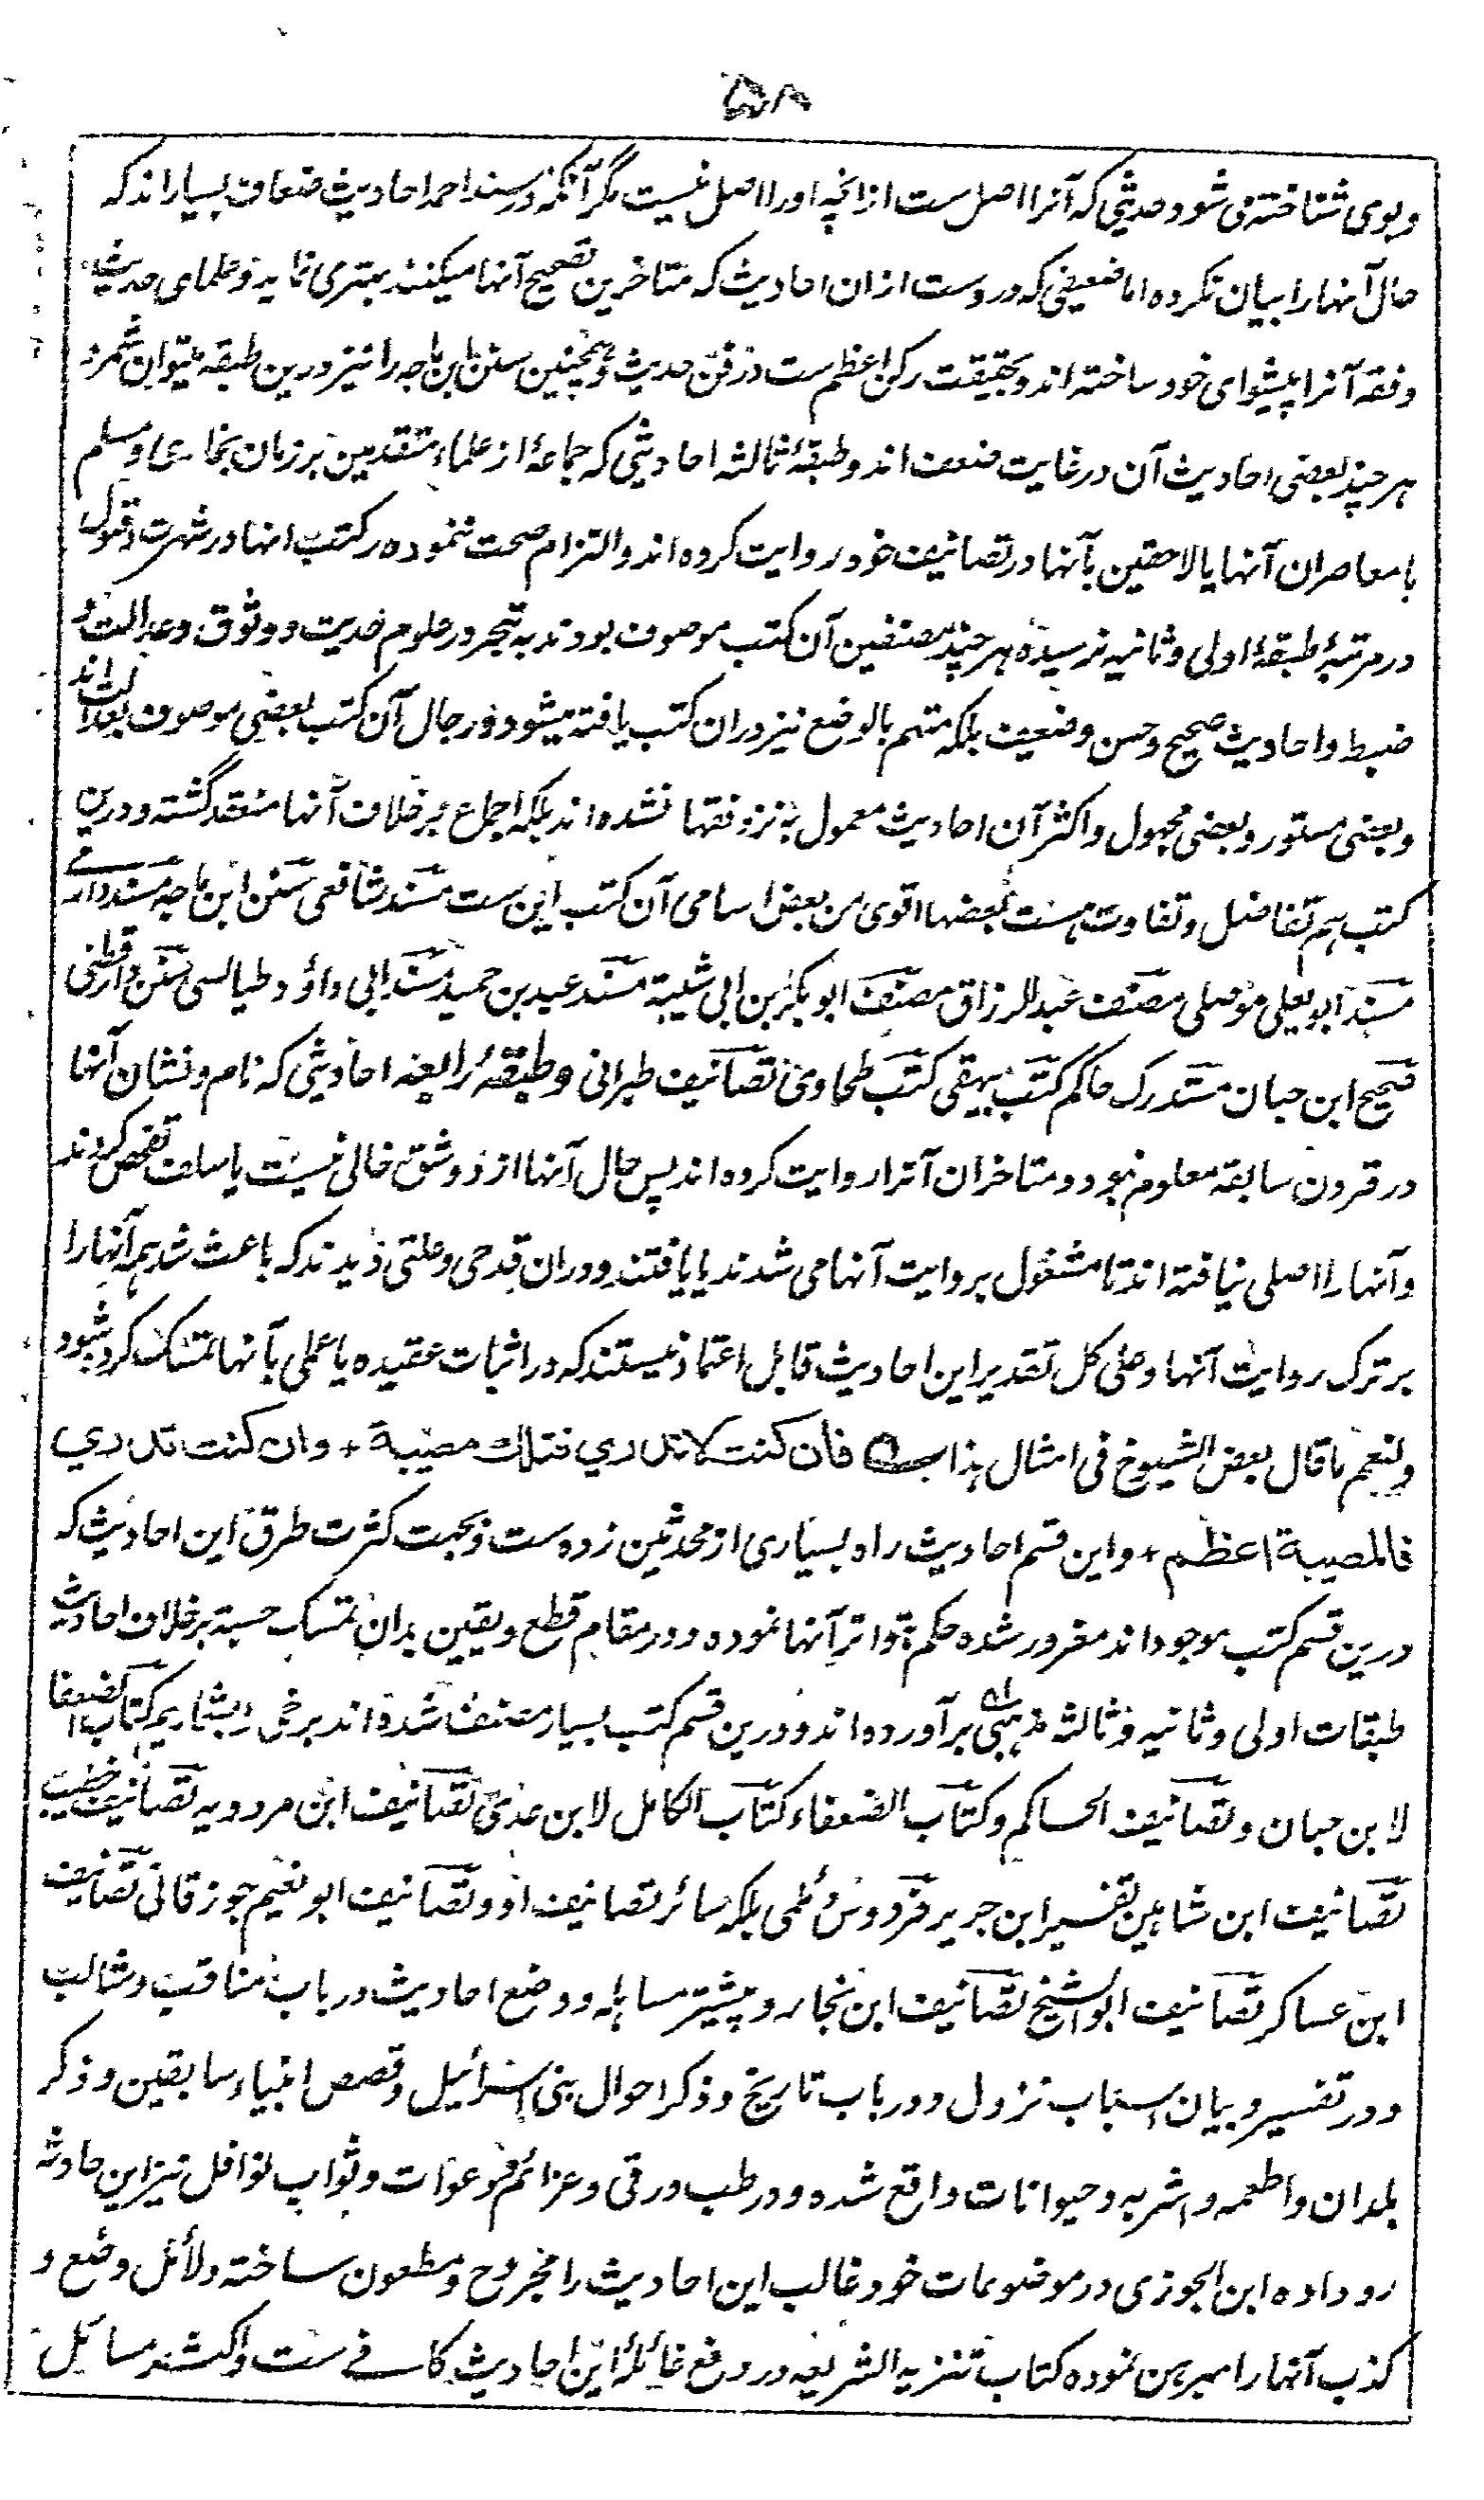 ۵۸
وبوی شناخته می شود حدیثی که آنرا اصل ست ازانچه اورا اصل نیست مگر آنکه در مسند احمد احادیث ضعاف بسیار اند که
حال آنها را بیان نکرده اما ضعیفی که در وست ازان احادیث که متاخرین تصحیح آنها میکنند بهتر می نماید و علمای حدیث
و فقه آنرا پیشوای خود ساخته اند و بحقیقت رکن اعظم ست در فن حدیث و همچنین سنن ابن ماجه را نیز درین طبقه میتوان شمرد
هر چند بعضی احادیث آن در غایت ضعف اند و طبقهٔ ثالثه احادیثی که جماعهٔ از علماء متقدمین بر زمان بخاری و مسلم
یا معاصران آنها یا لاحقین بآنها در تصانیف خود روایت کرده اند و التزام صحت ننموده و کتب انها در شهرت و قبول
در مرتبهٔ طبقهٔ اولی و ثانیه نرسیده هر چند مصنفین آن کتب موصوف بودند به تبحر در علوم حدیث و وثوق و عدالت و
ضبط و احادیث صحیح و حسن و ضعیف بلکه متهم بالوضع نیز دران کتب یافته میشود و رجال آن کتب بعضی موصوف بعدالت اند
و بعضی مستور و بعضی مجهول و اکثر آن احادیث معمول به نزد فقها نشده اند بلکه اجماع بر خلاف آنها منعقد گشته و درین
کتب هم تفاضل و تفاوت هست بعضها اقوی من بعض اسامی آن کتب این ست مسند شافعی سنن ابن ماجه مسند دارمی
مسند ابو یعلی موصلی مصنف عبدالرزاق مصنف ابو بکر بن ابی شیبة مسند عبد بن حمید مسند ابی داؤد طیالسی سنن دارقطنی
صحیح ابن حبان مستدرک حاکم کتب بیهقی کتب طحاوی تصانیف طبرانی و طبقهٔ رابعه احادیثی که نام و نشان آنها
در قرون سابقه معلوم نبود و متاخران آنرا روایت کرده اند پس حال آنها از دو شق خالی نیست یا سلف تفحص کردند
و آنها را اصلی نیافته اند تا مشغول بروایت آنها می شدند یا یافتند و دران قدحی و علتی دیدند که باعث شد همه آنها را
بر ترک روایت آنها و علی کل تقدیر این احادیث قابل اعتماد نیستند که در اثبات عقیده یا عملی بآنها تمسک کرده شود
ولنعم ما قال بعض الشیوخ فی امثال هذا فان کنت لا تدری فتلك مصیبة + وان کنت تدری
فالمصیبة اعظم + و این قسم احادیث راه بسیاری از محدثین زده ست و بجهت کثرت طرق این احادیث که
درین قسم کتب موجود اند مغرور شده حکم بتواتر آنها نموده و در مقام قطع و یقین بدان تمسک جسته بر خلاف احادیث
طبقات اولی و ثانیه و ثالثه مذهبی برآورده اند و درین قسم کتب بسیار مصنف شده اند برخی را بشماریم کتاب الضعفا
لابن حبان و تصانیف الحاکم و کتاب الضعفاء کتاب الکامل لابن عدی تصانیف ابن مردویه تصانیف خطیب
تصانیف ابن شاهین تفسیر ابن جریر فردوس دیلمی بلکه سائر تصانیف او و تصانیف ابو نعیم جوزقانی تصانیف
ابن عساکر تصانیف ابوالشیخ تصانیف ابن نجار و بیشتر مساهله و وضع احادیث در باب مناقب و مثالب
و در تفسیر و بیان اسباب نزول و در باب تاریخ و ذکر احوال بنی اسرائیل و قصص انبیاء سابقین و ذکر
بلدان و اطعمه و اشربه و حیوانات واقع شده و در طب و رقی و عزائم و دعوات و ثواب نوافل نیز این حادثه
رو داده ابن الجوزی در موضوعات خود غالب این احادیث را مجروح و مطعون ساخته دلائل وضع و
کذب آنها را مبرهن نموده کتاب تنزیه الشریعه در دفع غائلهٔ این احادیث کافی ست و اکثر مسائل